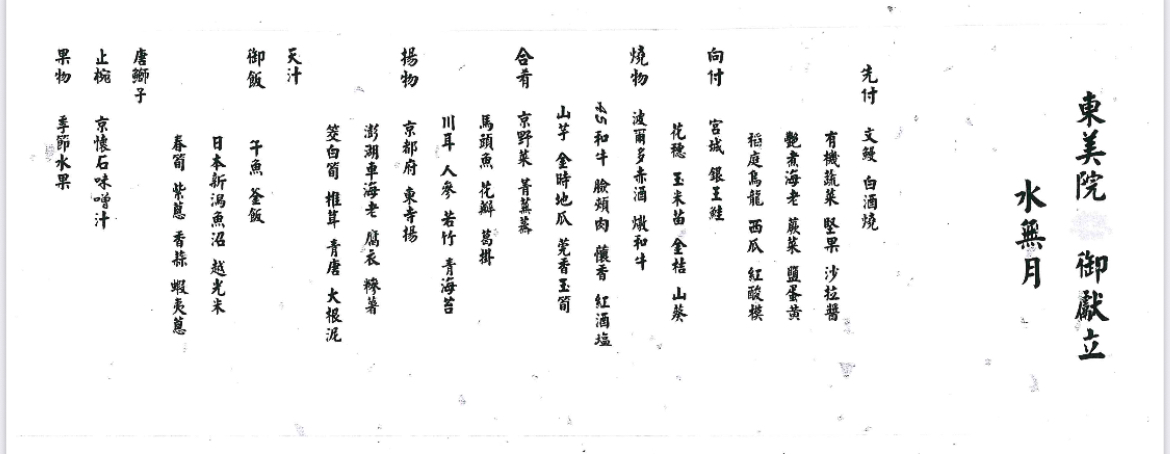 東美院 御獻立
水無月
先付 文鰻 白酒燒
有機蔬菜 堅果 沙拉醬
艷煮海老 蕨菜 鹽蛋黃
稻庭烏龍 西瓜 紅酸模
向付 宮城 銀王鮭
花穗 玉米苗 金桔 山葵
燒物 波爾多赤酒 燉和牛
A5和牛 臉頰肉 懷香 紅酒塩
山芋 金時地瓜 莞香玉筍
合肴 京野菜 菁蕪蒸
馬頭魚 花瓣 葛掛
川耳 人參 若竹 青海苔
揚物 京都府 東寺揚
澎湖車海老 腐衣 糝薯
筊白筍 椎茸 青唐 大根泥
天汁
御飯 午魚 釜飯
日本新潟魚沼 越光米
春筍 紫蔥 香蒜 蝦夷蔥
唐鰤子
止椀 京懷石味噌汁
果物 季節水果